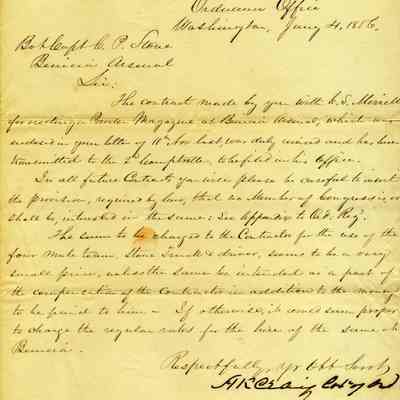 Ordnance Office
Washington, Jany 4, 1856
Bvt Capt C. P. Stone
Benicia Arsenal
Sir:
The contract made by you with
for erecting a Powder Magazine at Benicia Arsenal, which was
enclosed in your letter of Nov last, was duly received and has been
transmitted to the 2d Comptroller, to be filed in his Office.
In all future Contracts you will please be careful to insert
the provision, required by law, that no Member of Congress is, or
shall be, interested in the same: See Appendix to Ord. Reg.
The sum to be charged to the Contractor for the use of the
four mule team, Stone truck & driver, seems to be a very
small price, unless the same be intended as a part of
the compensation of the Contractor in addition to the money
to be paid to him - If otherwise, it would seem proper
to charge the regular rates for the hire of the same at
Benicia.
Respectfully, Yr Obt Servt
H K Craig Col of Ord